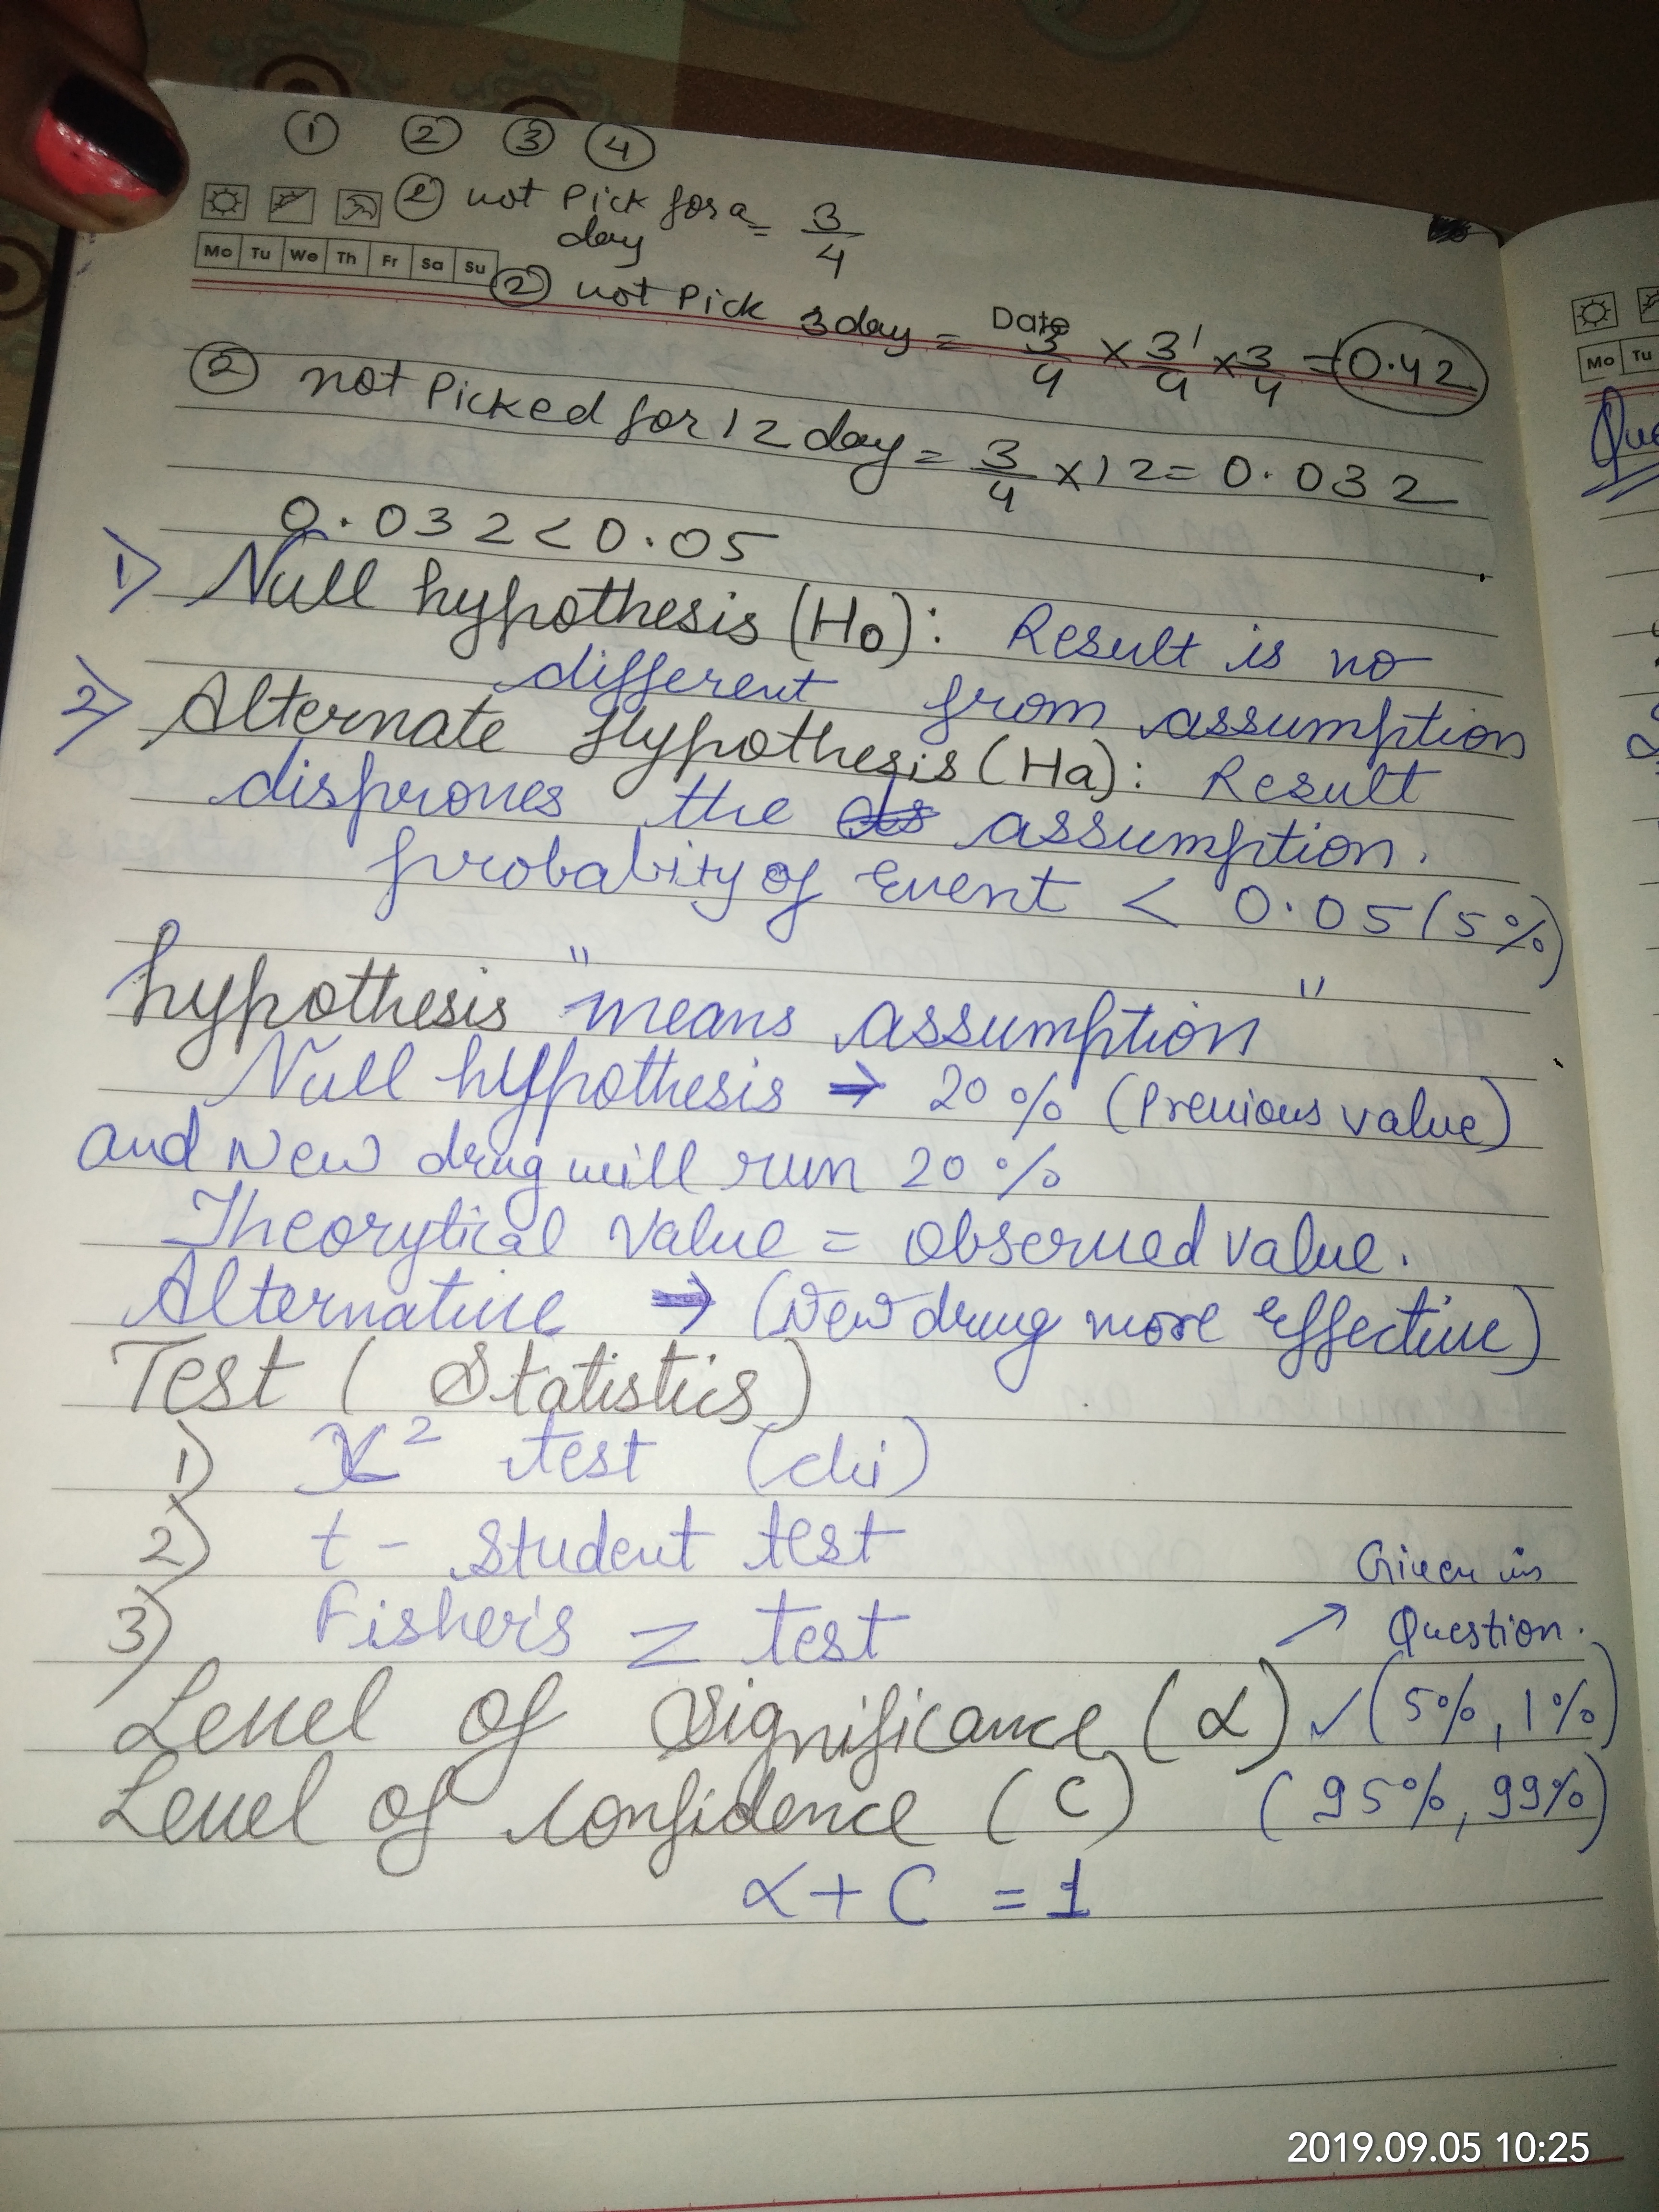 ① ② ③ ④
② not Pick for a day = 3/4
Mo Tu We Th Fr Sa Su
Date
② not Pick 3 day = 3/4 × 3/4 × 3/4 = 0.42
② not Picked for 12 day = 3/4 × 12 = 0.032
0.032 < 0.05
1) Null hypothesis (Ho): Result is no
different from assumption
2) Alternate Hypothesis (Ha): Result
disproves the assumption.
probabity of Event < 0.05 (5%)
hypothesis "means assumption"
Null hypothesis → 20% (Previous value)
and New drug will run 20%
Theorytical Value = observed value.
Alternative → (New drug more effective)
Test (Statistics)
1) X² test (chi)
2) t - student test
3) Fisher's Z test
Given in
Question.
Level of Significance (α) ✓ (5%, 1%)
Level of Confidence (C) (95%, 99%)
α + C = 1
Mo Tu
2019.09.05 10:25